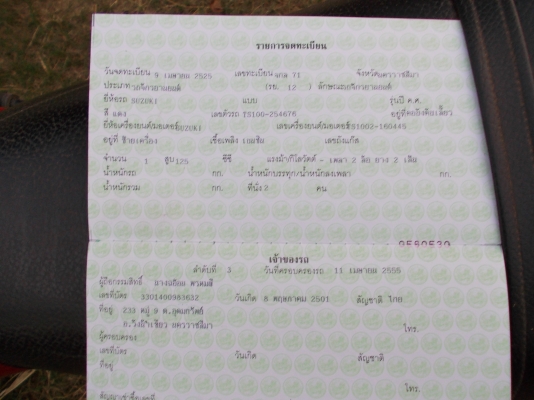 รายการจดทะเบียน
วันจดทะเบียน 9 เมษายน 2525 เลขทะเบียน 71 จังหวัด นครราชสีมา
ประเภท รถจักรยานยนต์ (รย. 12 ) ลักษณะ รถจักรยานยนต์
ยี่ห้อรถ SUZUKI แบบ รุ่นปี ค.ศ.
สี แดง เลขตัวรถ TS100-254676 อยู่ที่
ยี่ห้อเครื่องยนต์/มอเตอร์ SUZUKI เลขเครื่องยนต์/มอเตอร์ TS1002-160445
อยู่ที่ ซ้ายเครื่อง เชื้อเพลิง เบนซิน เลขถังแก๊ส
จำนวน 1 สูบ 125 ซีซี แรงม้า/กิโลวัตต์ - เพลา 2 ล้อ ยาง 2 เส้น
น้ำหนักรถ กก. น้ำหนักบรรทุก/น้ำหนักลงเพลา กก.
น้ำหนักรวม กก. ที่นั่ง 2 คน
เจ้าของรถ
ลำดับที่ 3 วันที่ครอบครองรถ 11 เมษายน 2555
ผู้ถือกรรมสิทธิ์
เลขที่บัตร 3301400983632 วันเกิด 8 พฤษภาคม 2501 สัญชาติ ไทย
ที่อยู่ 233 หมู่ 9 ต.
อ.วังน้ำเขียว นครราชสีมา โทร.
ผู้ครอบครอง
เลขที่บัตร วันเกิด สัญชาติ
ที่อยู่
โทร.
สัญญาเช่าซื้อเลขที่